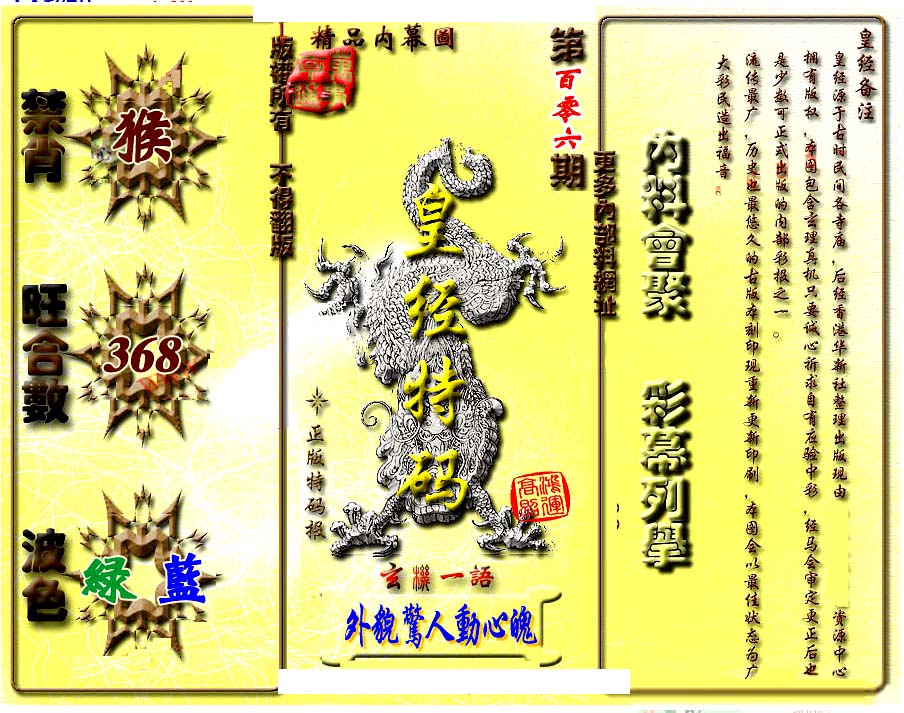 精品内幕圖
第百零六期
版權所有 不得翻版
更多內部料網址
禁肖
猴
旺合數
368
波色
綠 藍
皇经特码
正版特码报
鴻運高照
玄機一語
外貌驚人動心魄
內料會聚 彩幕列舉
皇经备注
皇经源于古时民间各寺庙,后经香港华新社整理出版现由 资源中心
拥有版权,本图包含玄理真机只要诚心祈求自有应验中彩,经马会审定更正后也
是少数可正式出版的内部彩报之一。
流传最广,历史也最悠久的古版本刻印现重新更新印刷,本图会以最佳状态为广
大彩民造出福音